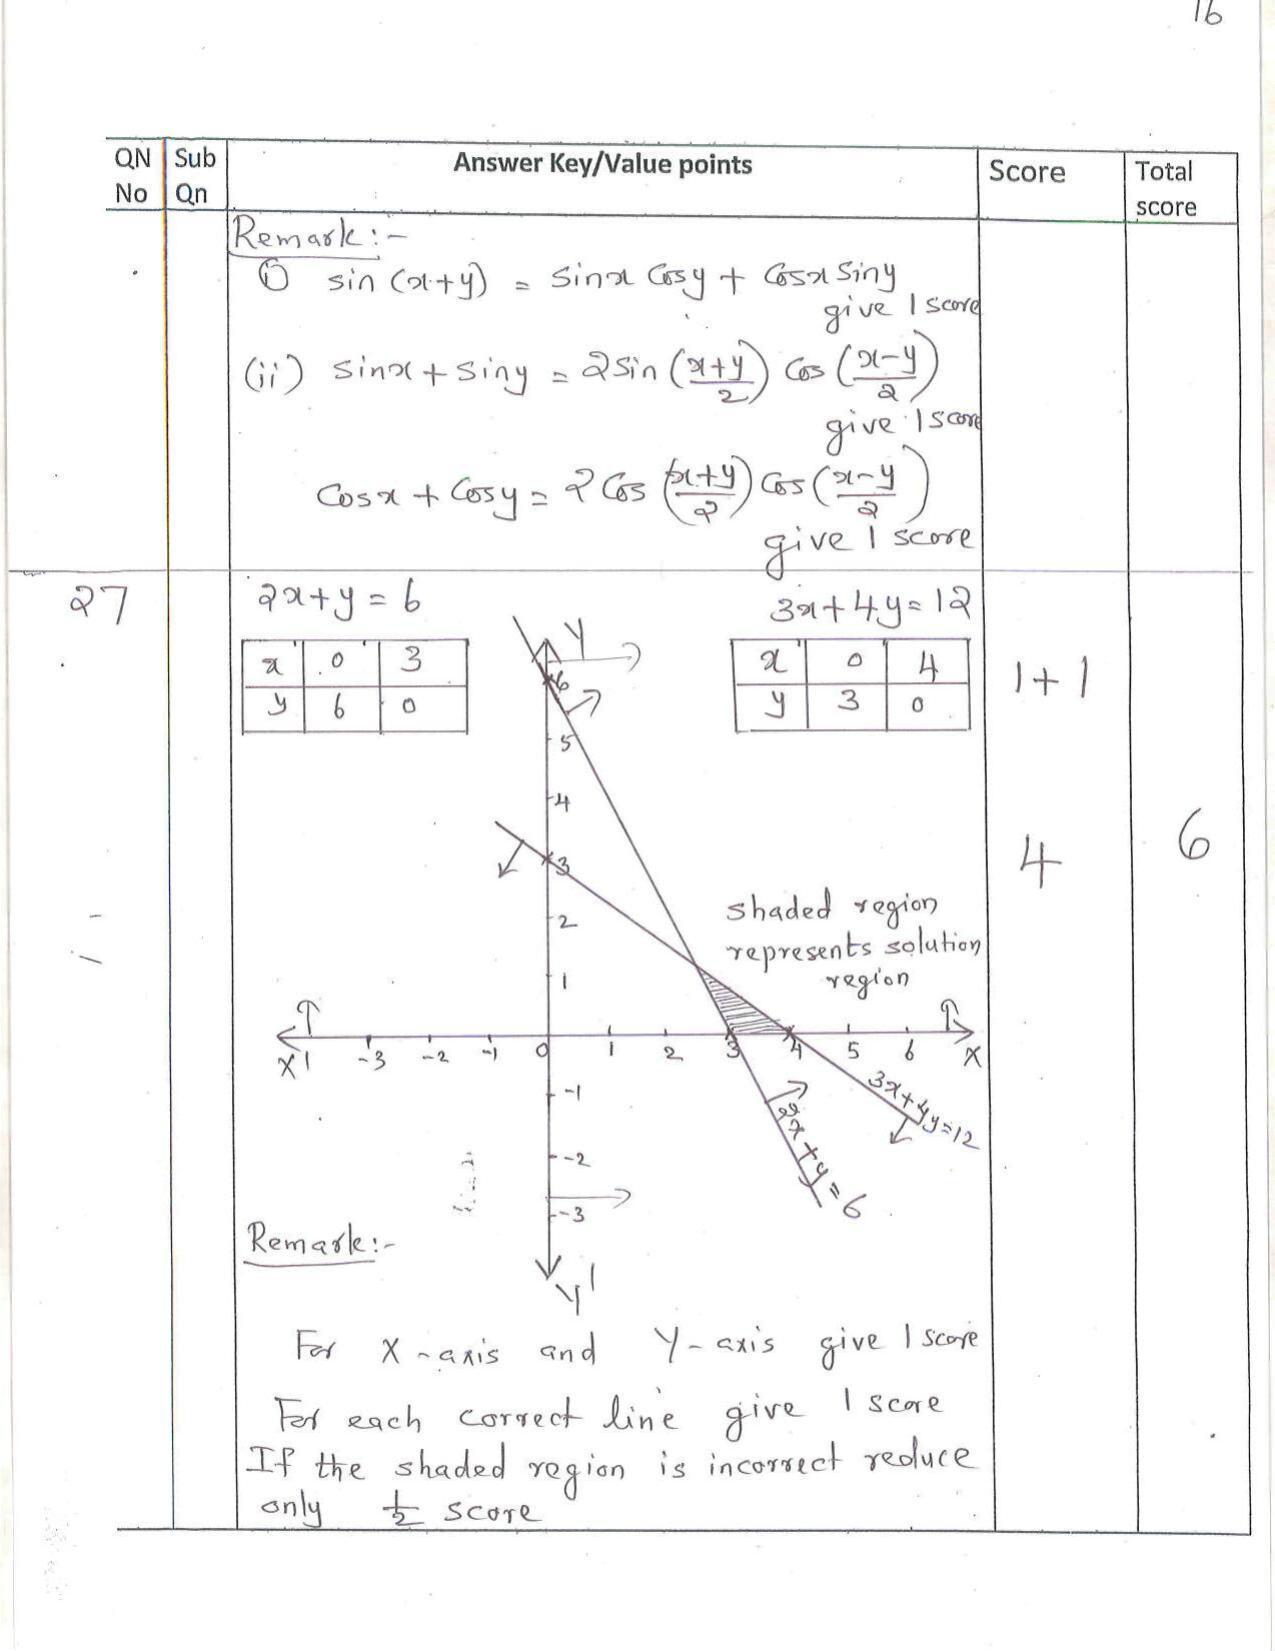 16
QN No
Sub Qn
Answer Key/Value points
Score
Total score
Remark :-
(i) sin (x+y) = sinx Cosy + Cosx Siny
give 1 score
(ii) sinx + siny = 2 sin (x+y/2) Cos (x-y/2)
give 1 score
Cosx + Cosy = 2 Cos (x+y/2) Cos (x-y/2)
give 1 score
27
2x+y = 6
3x+4y=12
x 0 3
y 6 0
x 0 4
y 3 0
1+1
Y
6
5
4
3
2
1
4
6
shaded region
represents solution
region
X' -3 -2 -1 0 1 2 3 4 5 6 X
-1
-2
-3
3x+4y=12
2x+y=6
Y'
Remark:-
For X-axis and Y-axis give 1 score
For each correct line give 1 score
If the shaded region is incorrect reduce
only 1/2 score